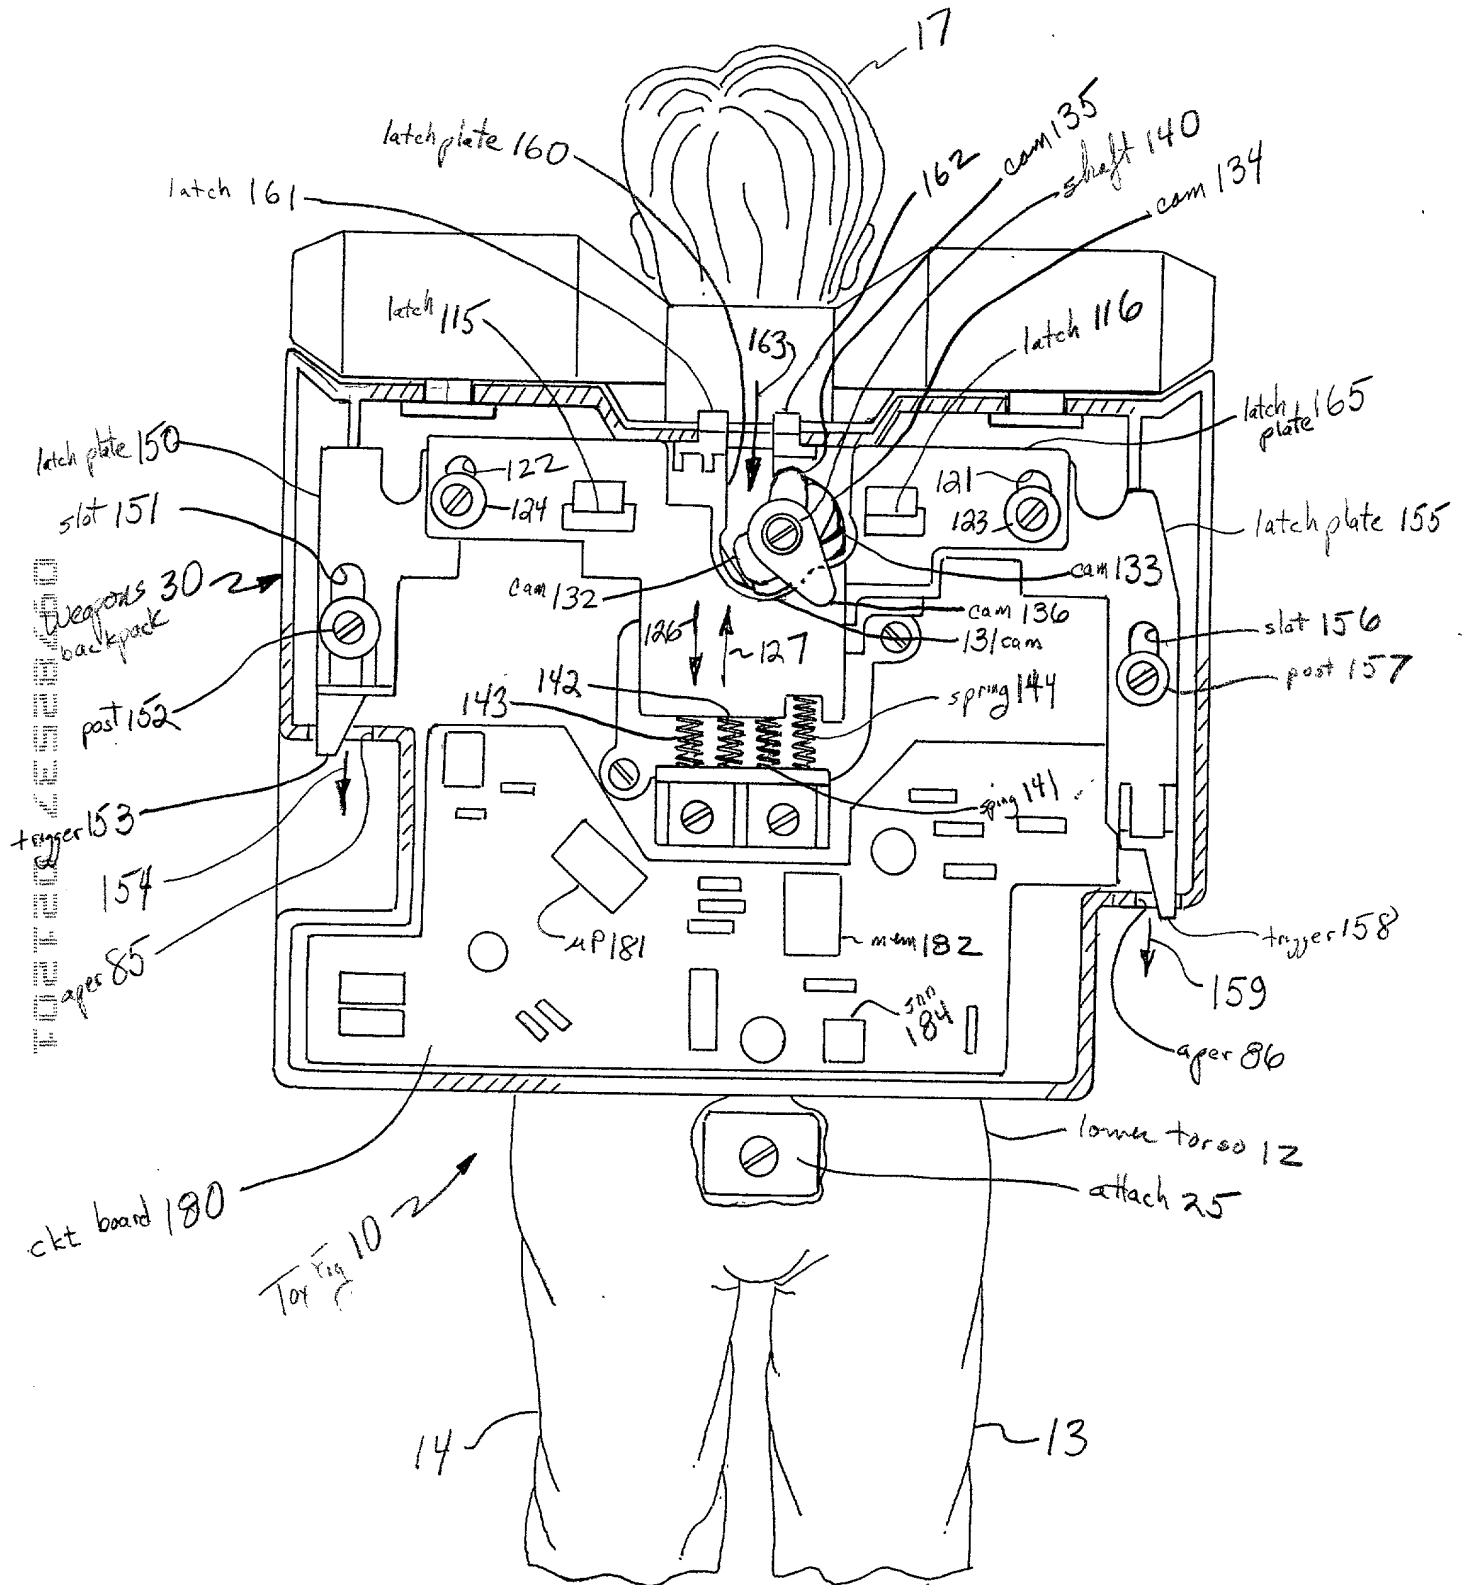 17
latch plate 160
cam 135
shaft 140
162
cam 134
latch 161
latch 115
163
latch 116
latch plate 165
latch plate 150
122
121
slot 151
124
123
latch plate 155
weapons 30
backpack
cam 132
cam 133
cam 136
131 cam
126
127
slot 156
post 157
142
143
spring 144
post 152
spring 141
trigger 153
154
aper 85
µP 181
mem 182
184
trigger 158
159
aper 86
lower torso 12
attach 25
ckt board 180
Toy Fig 10
14
13